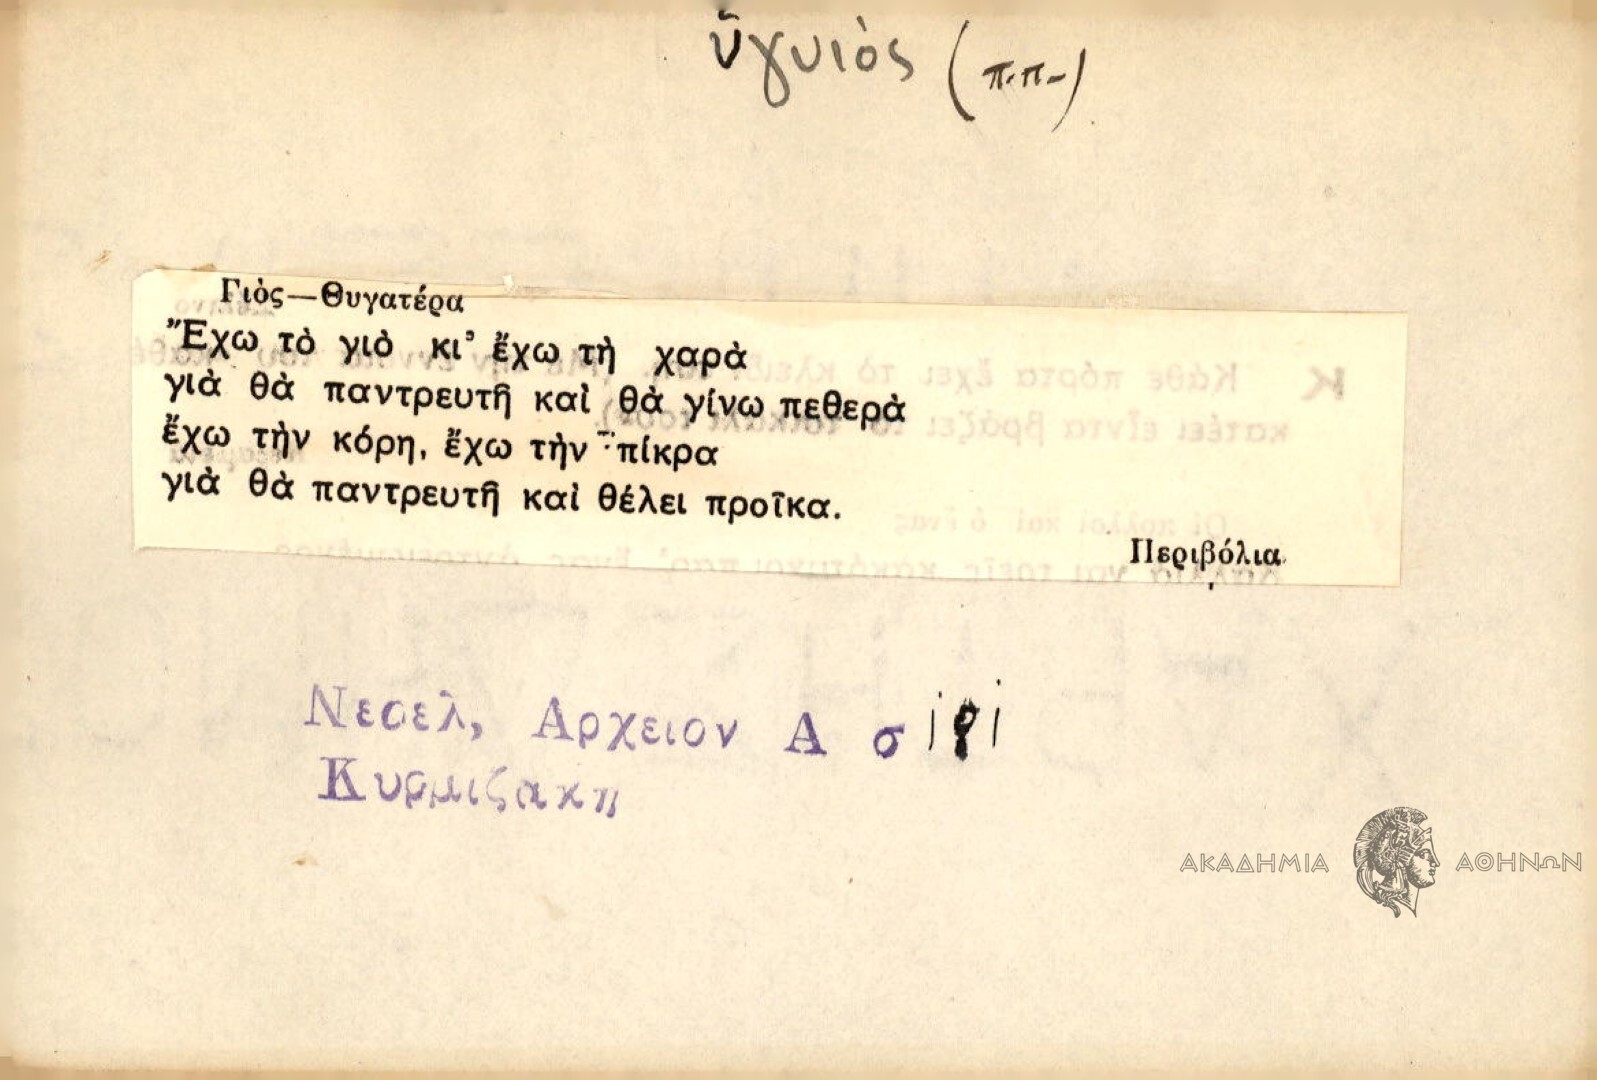 ὑγυιὸς (π.π-)
Γιὸς—Θυγατέρα
Ἔχω τὸ γιὸ κι' ἔχω τὴ χαρὰ
γιὰ θὰ παντρευτῆ καὶ θὰ γίνω πεθερὰ
ἔχω τὴν κόρη, ἔχω τὴν πίκρα
γιὰ θὰ παντρευτῆ καὶ θέλει προῖκα.
Περιβόλια
Νεοελ, Αρχειον Α σ
Κυρμιζακη
ΑΚΑΔΗΜΙΑ ΑΘΗΝΩΝ